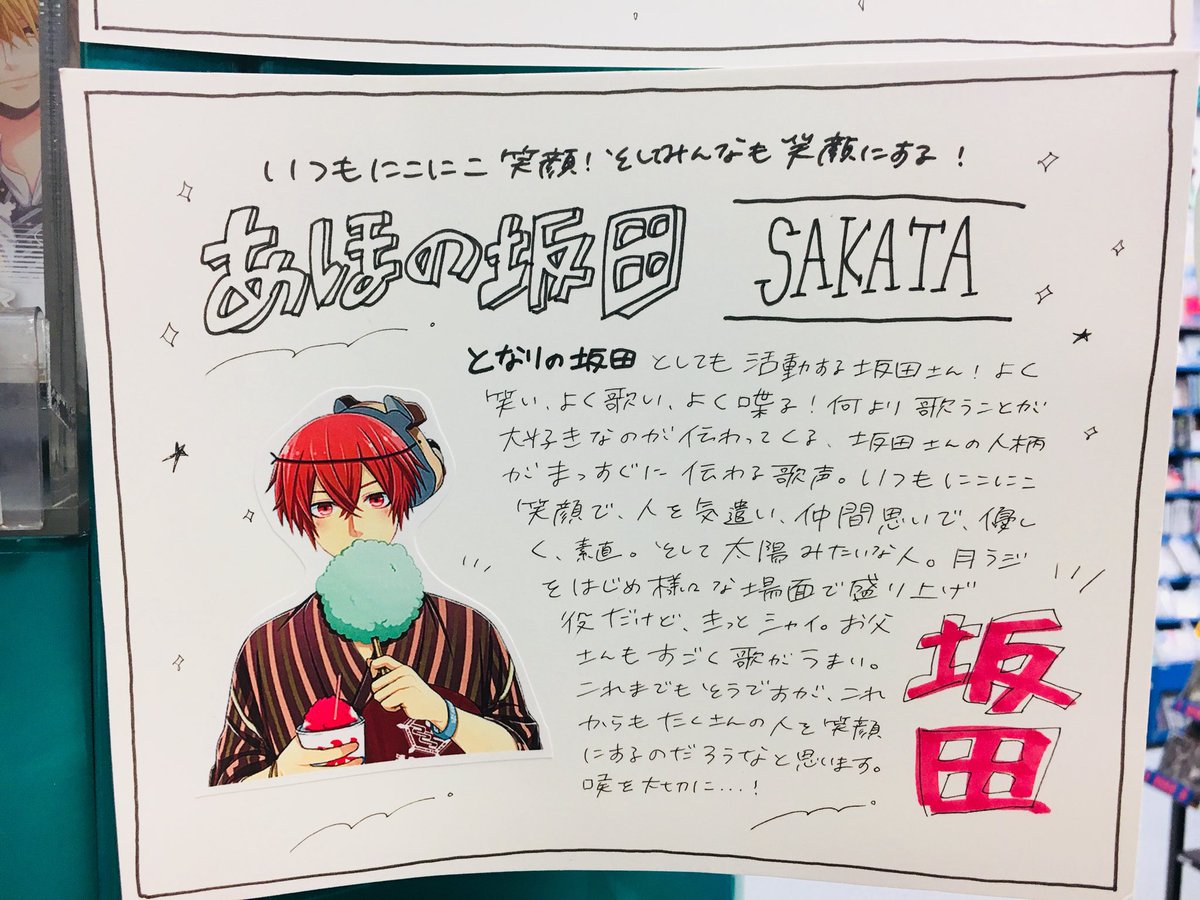 いつもにこにこ笑顔!そしてみんなも笑顔にする!
あほの坂田
SAKATA
となりの坂田としても活動する坂田さん!よく
笑い、よく歌い、よく喋る!何より歌うことが
大好きなのが伝わってくる、坂田さんの人柄
がまっすぐに伝わる歌声。いつもにこにこ
笑顔で、人を気遣い、仲間思いで、優し
く、素直。そして太陽みたいな人。月ラジ
をはじめ様々な場面で盛り上げ
役だけど、きっとシャイ。お父
さんもすごく歌がうまい。
これまでもそうですが、これ
からもたくさんの人を笑顔
にするのだろうなと思います。
喉を大切に…!
坂
田